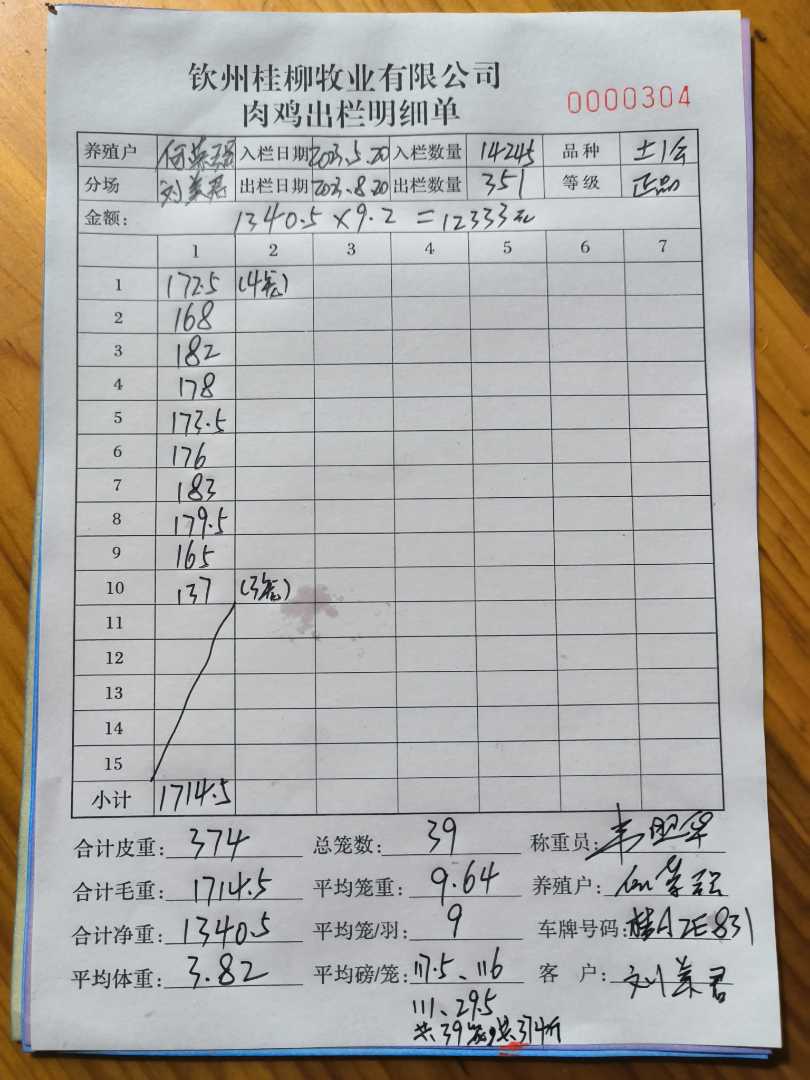 钦州桂柳牧业有限公司
肉鸡出栏明细单
0000304
养殖户 入栏日期 2023.5.20 入栏数量 14245 品种 土1会
分场 刘美君 出栏日期 2023.8.20 出栏数量 351 等级 正品
金额: 1340.5×9.2=12333元
1 2 3 4 5 6 7
1 172.5 (4笼)
2 168
3 182
4 178
5 173.5
6 176
7 183
8 179.5
9 165
10 137 (3笼)
11
12
13
14
15
小计 1714.5
合计皮重: 374 总笼数: 39 称重员:
合计毛重: 1714.5 平均笼重: 9.64 养殖户:
合计净重: 1340.5 平均笼/羽: 9 车牌号码: 桂A7E831
平均体重: 3.82 平均磅/笼: 117.5、116 客户: 刘美君
111、29.5
共39笼,共374斤